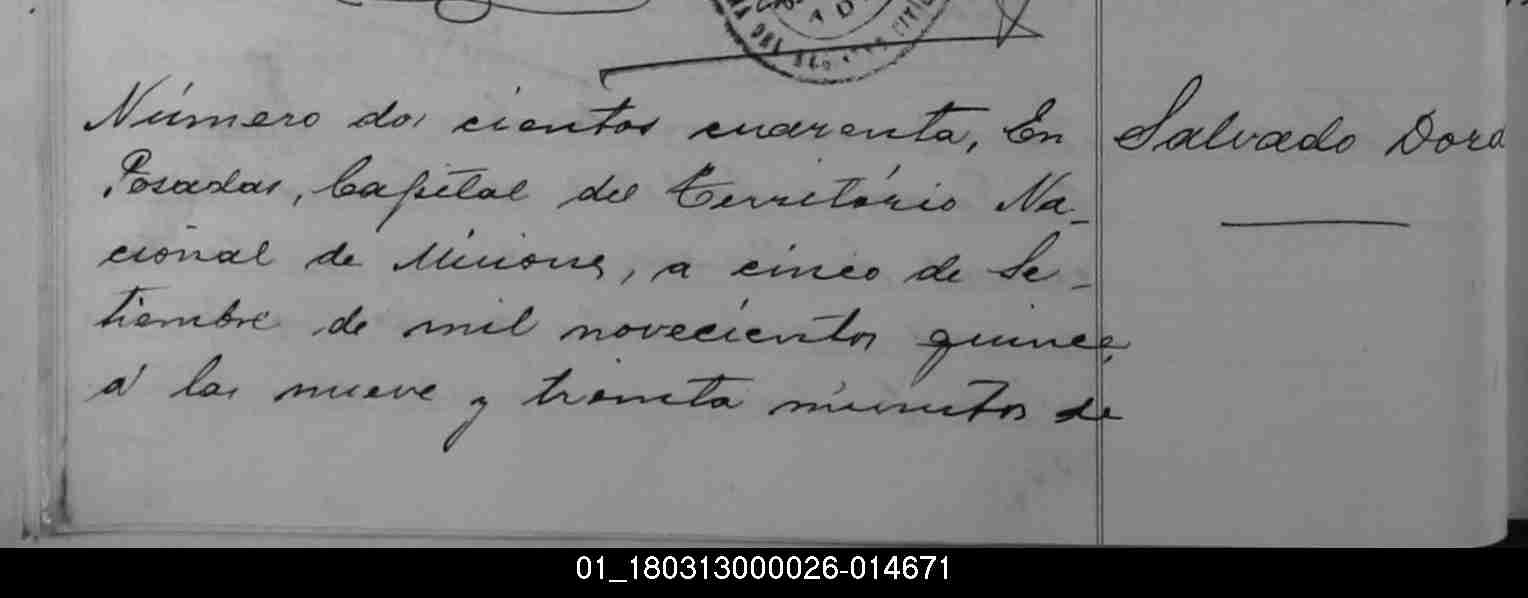 Número dos cientos cuarenta, En
Posadas, Capital del Território Na-
cional de Misiones, a cinco de Se-
tiembre de mil novecientos quince,
á las nueve y treinta minutos de
Salvado Dora
01_180313000026-014671